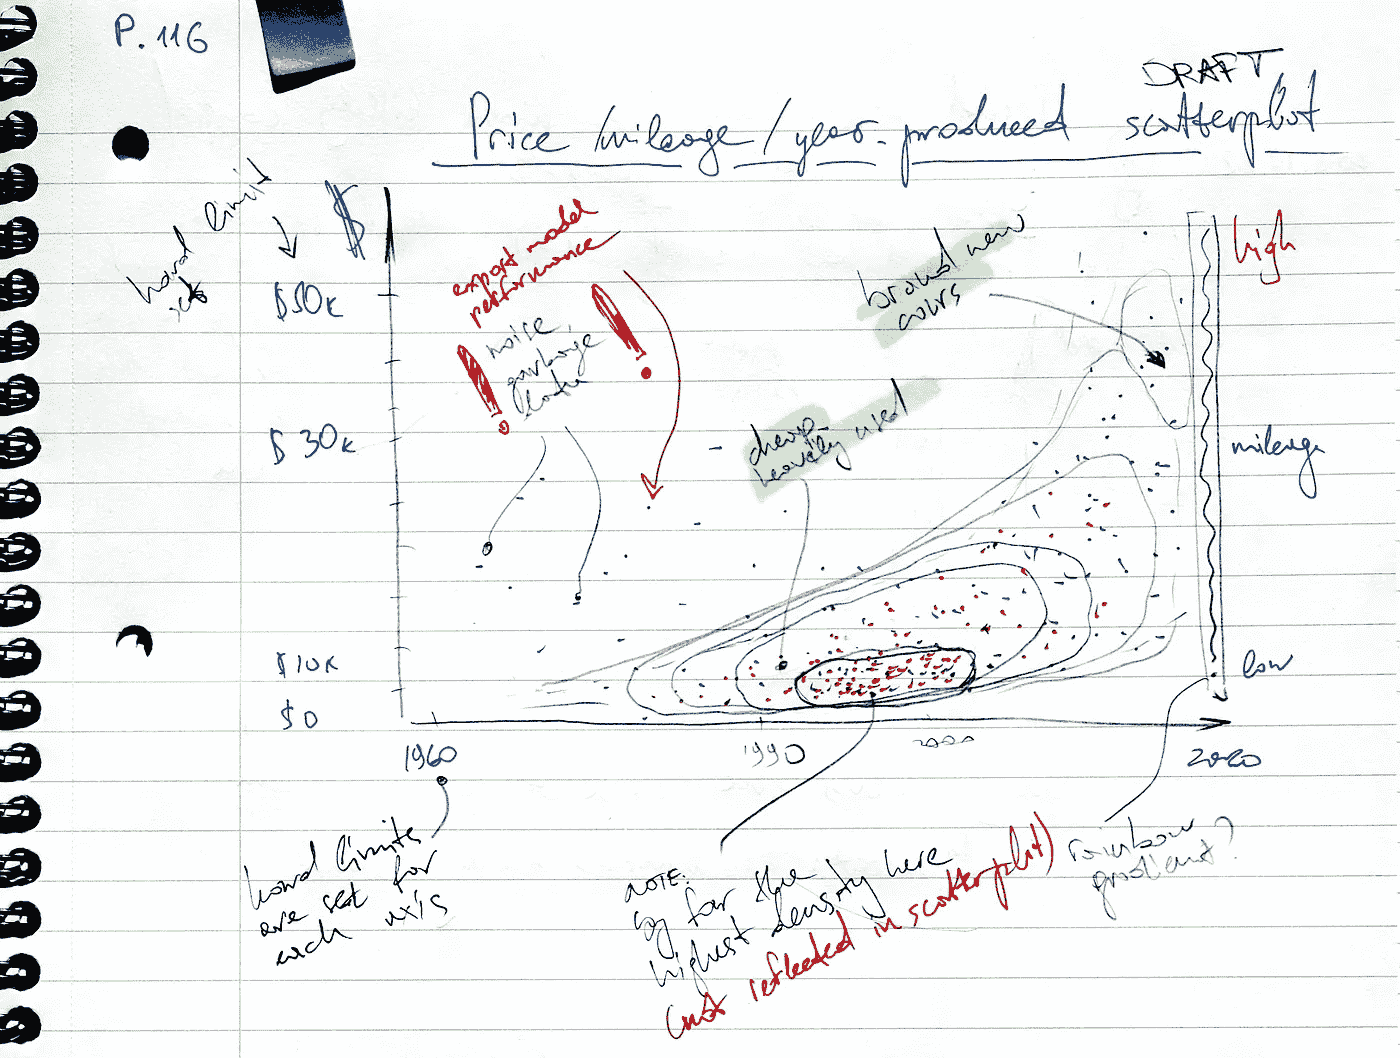 P. 116
DRAFT
Price/mileage/year-produced scatterplot
hard limit
set
$
$50k
$30k
$10k
$0
export model
performance
noise,
garbage
data
brand new
cars
cheap
heavily used
high
mileage
low
1960
1990
2000
2020
hard limits
are set for
each axis
NOTE:
by far the
highest density here
(not reflected in scatterplot)
rainbow
gradient?